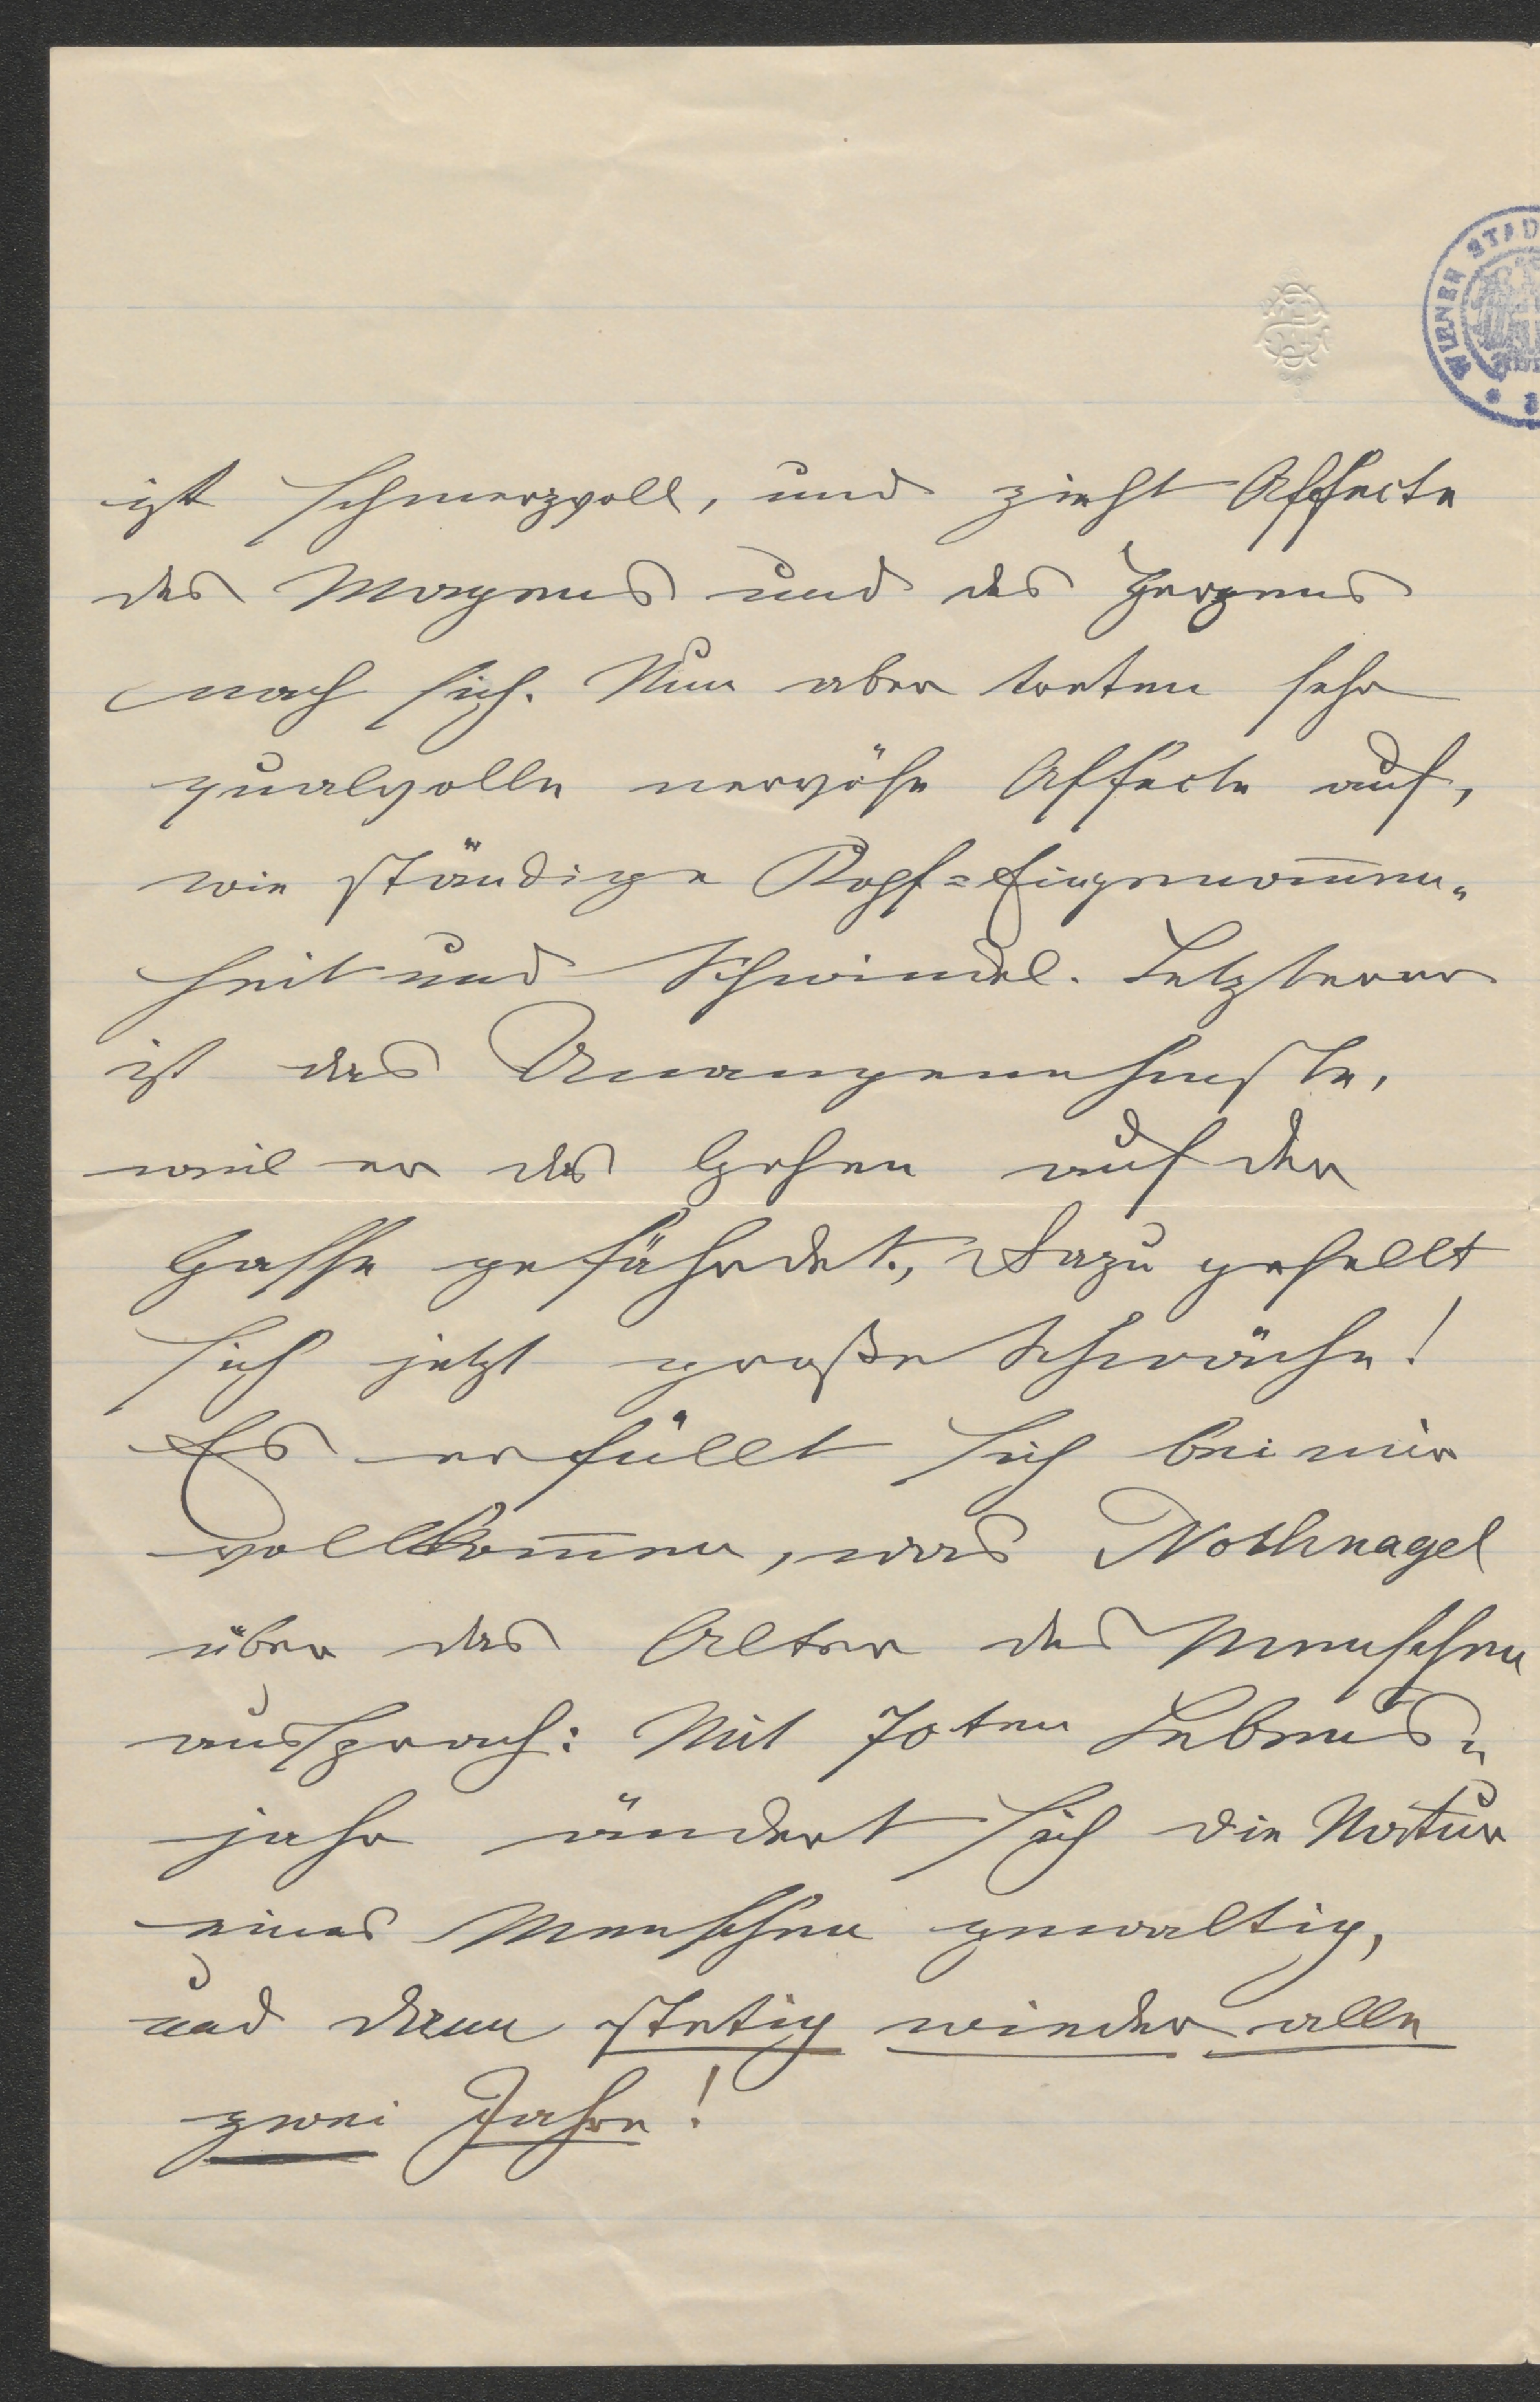 WIENER STAD
ist schmerzvoll, und zieht Affecte
des Magens und des Herzens
nach sich. Nun aber treten sehr
qualvolle nervöse Affecte auf,
wie ständige Kopf=Eingenom̅en„
heit und Schwindel. Letzterer
ist das Unangenehmste,
weil er das Gehen auf der
Gasse gefährdet., Dazu gesellt
sich jetzt große Schwäche!
Es erfüllt sich bei mir
vollkom̅en, was Nothnagel
über das Alter des Menschen
aussprach: Mit 70ten Lebens„
jahr ändert sich die Natur
eines Menschen gewaltig,
und dann stetig wieder alle
zwei Jahre!